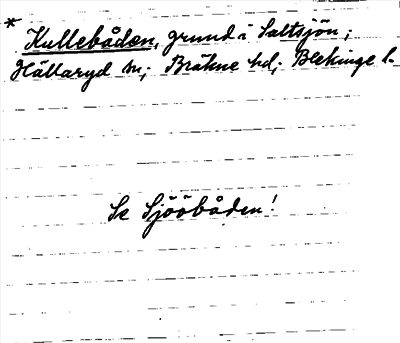 * Kullebåden, grund i Saltsjön,
Hällaryd sn; Bräkne hd; Blekinge l.
Se Sjööbåden!